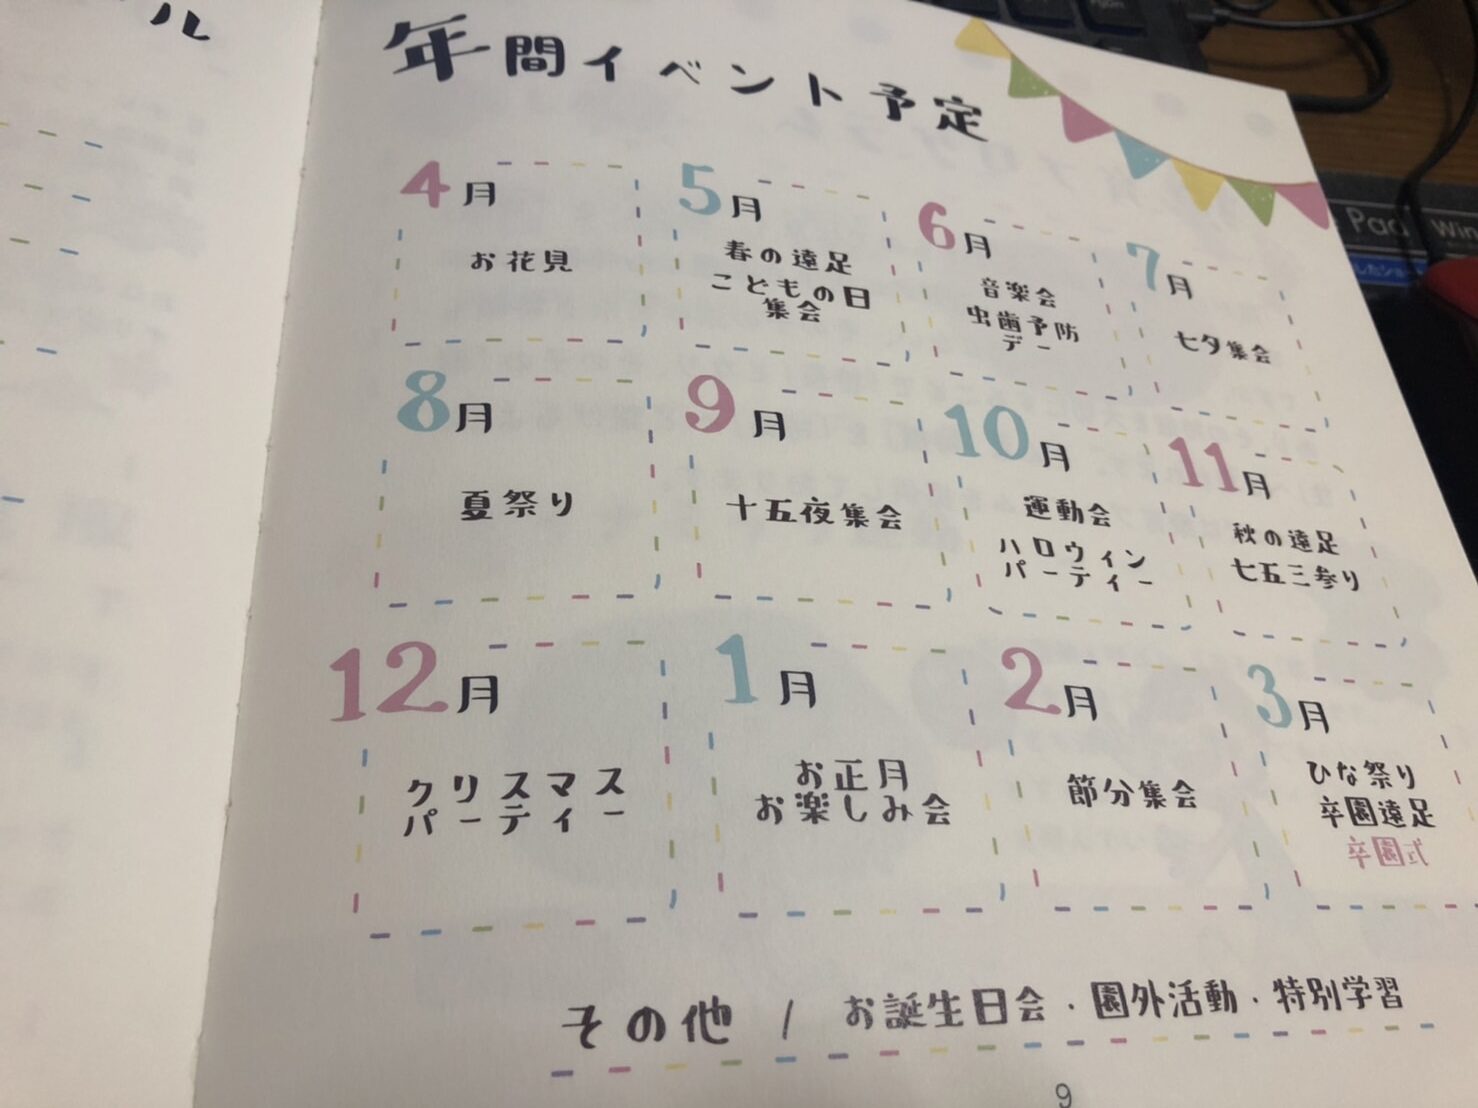 ル
年間イベント予定
4月
お花見
5月
春の遠足
こどもの日
集会
6月
音楽会
虫歯予防
デー
7月
七夕集会
8月
夏祭り
9月
十五夜集会
10月
運動会
ハロウィン
パーティー
11月
秋の遠足
七五三参り
12月
クリスマス
パーティー
1月
お正月
お楽しみ会
2月
節分集会
3月
ひな祭り
卒園遠足
卒園式
その他 / お誕生日会・園外活動・特別学習
9
Pad